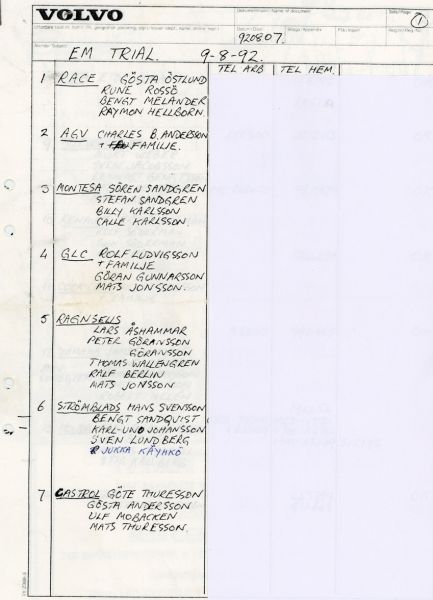 VOLVO
Dokumentnamn/Name of document
Sida/Page
1
Datum/Date
Bilaga/Appendix
920807.
EM TRIAL. 9-8-92.
TEL ARB TEL HEM.
1 RACE GÖSTA ÖSTLUND
RUNE ROSSÖ
BENGT MELANDER
RAYMON HELLBORN
2 AGV CHARLES B. ANDERSSON
+ FAMILIE.
3 MONTESA SÖREN SANDGREN
STEFAN SANDGREN
BILLY KARLSSON
CALLE KARLSSON
4 GLC ROLF LUDVIGSSON
+ FAMILJE
GÖRAN GUNNARSSON
MATS JONSSON.
5 RAGNSELLS
LARS ÅSHAMMAR
PETER GÖRANSSON
GÖRANSSON
THOMAS WALLENGREN
RALF BERLIN
MATS JONSSON
6 STRÖMBLADS HANS SVENSSON
BENGT SANDQUIST
KARL-UNO JOHANSSON
SVEN LUNDBERG
JUKKA KÄYHKÖ
7 CASTROL GÖTE THURESSON
GÖSTA ANDERSSON
ULF MOBACKEN
MATS THURESSON.